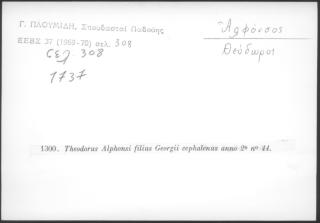 Γ. ΠΛΟΥΜΙΔΗ, Σπουδασταί Παδούης
ΕΕΒΣ 37 (1969-70) σελ. 308
σελ 308
1737
Ἀλφόνσος
Θεόδωρος
1300. Theodorus Alphonsi filius Georgii cephalenus anno 2º nº 44.